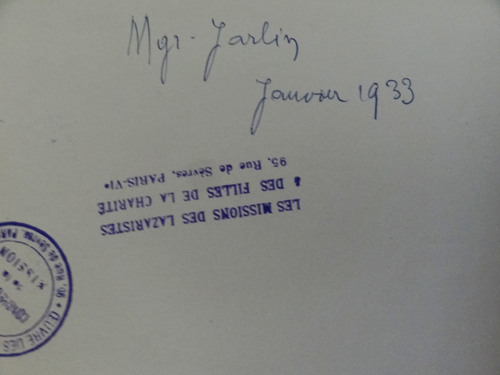 Mgr. Jarlin
Janvier 1933
LES MISSIONS DES LAZARISTES
& DES FILLES DE LA CHARITÉ
95, Rue de Sèvres, PARIS-VIe
ŒUVRE DES
Rue de Sèvres, PARIS